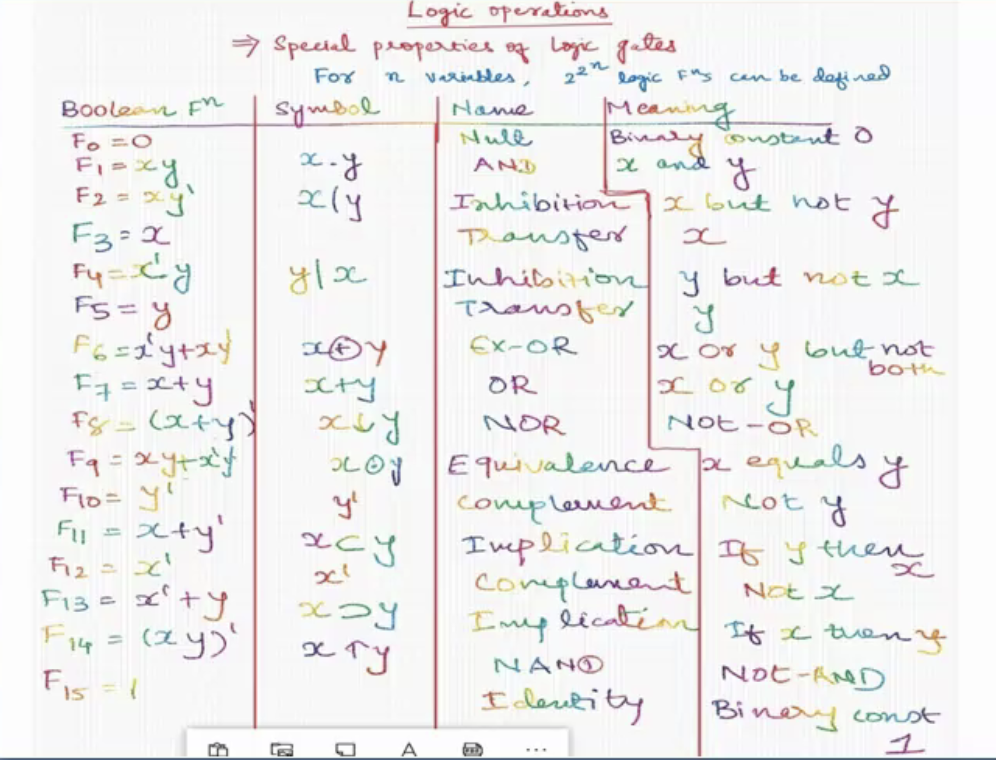 Logic operations
⇒ Special properties of Logic gates
For n variables, 2^2^n logic Fⁿs can be defined
Boolean Fⁿ Symbol Name Meaning
F0 = 0 Null Binary constant 0
F1 = xy x·y AND x and y
F2 = xy' x/y Inhibition x but not y
F3 = x Transfer x
F4 = x'y y/x Inhibition y but not x
F5 = y Transfer y
F6 = x'y+xy' x⊕y EX-OR x or y but not both
F7 = x+y x+y OR x or y
F8 = (x+y)' x↓y NOR Not-OR
F9 = xy+x'y' x⊙y Equivalence x equals y
F10 = y' y' complement Not y
F11 = x+y' x⊂y Implication If y then x
F12 = x' x' complement Not x
F13 = x'+y x⊃y Implication If x then y
F14 = (xy)' x↑y NAND Not-AND
F15 = 1 Identity Binary const 1